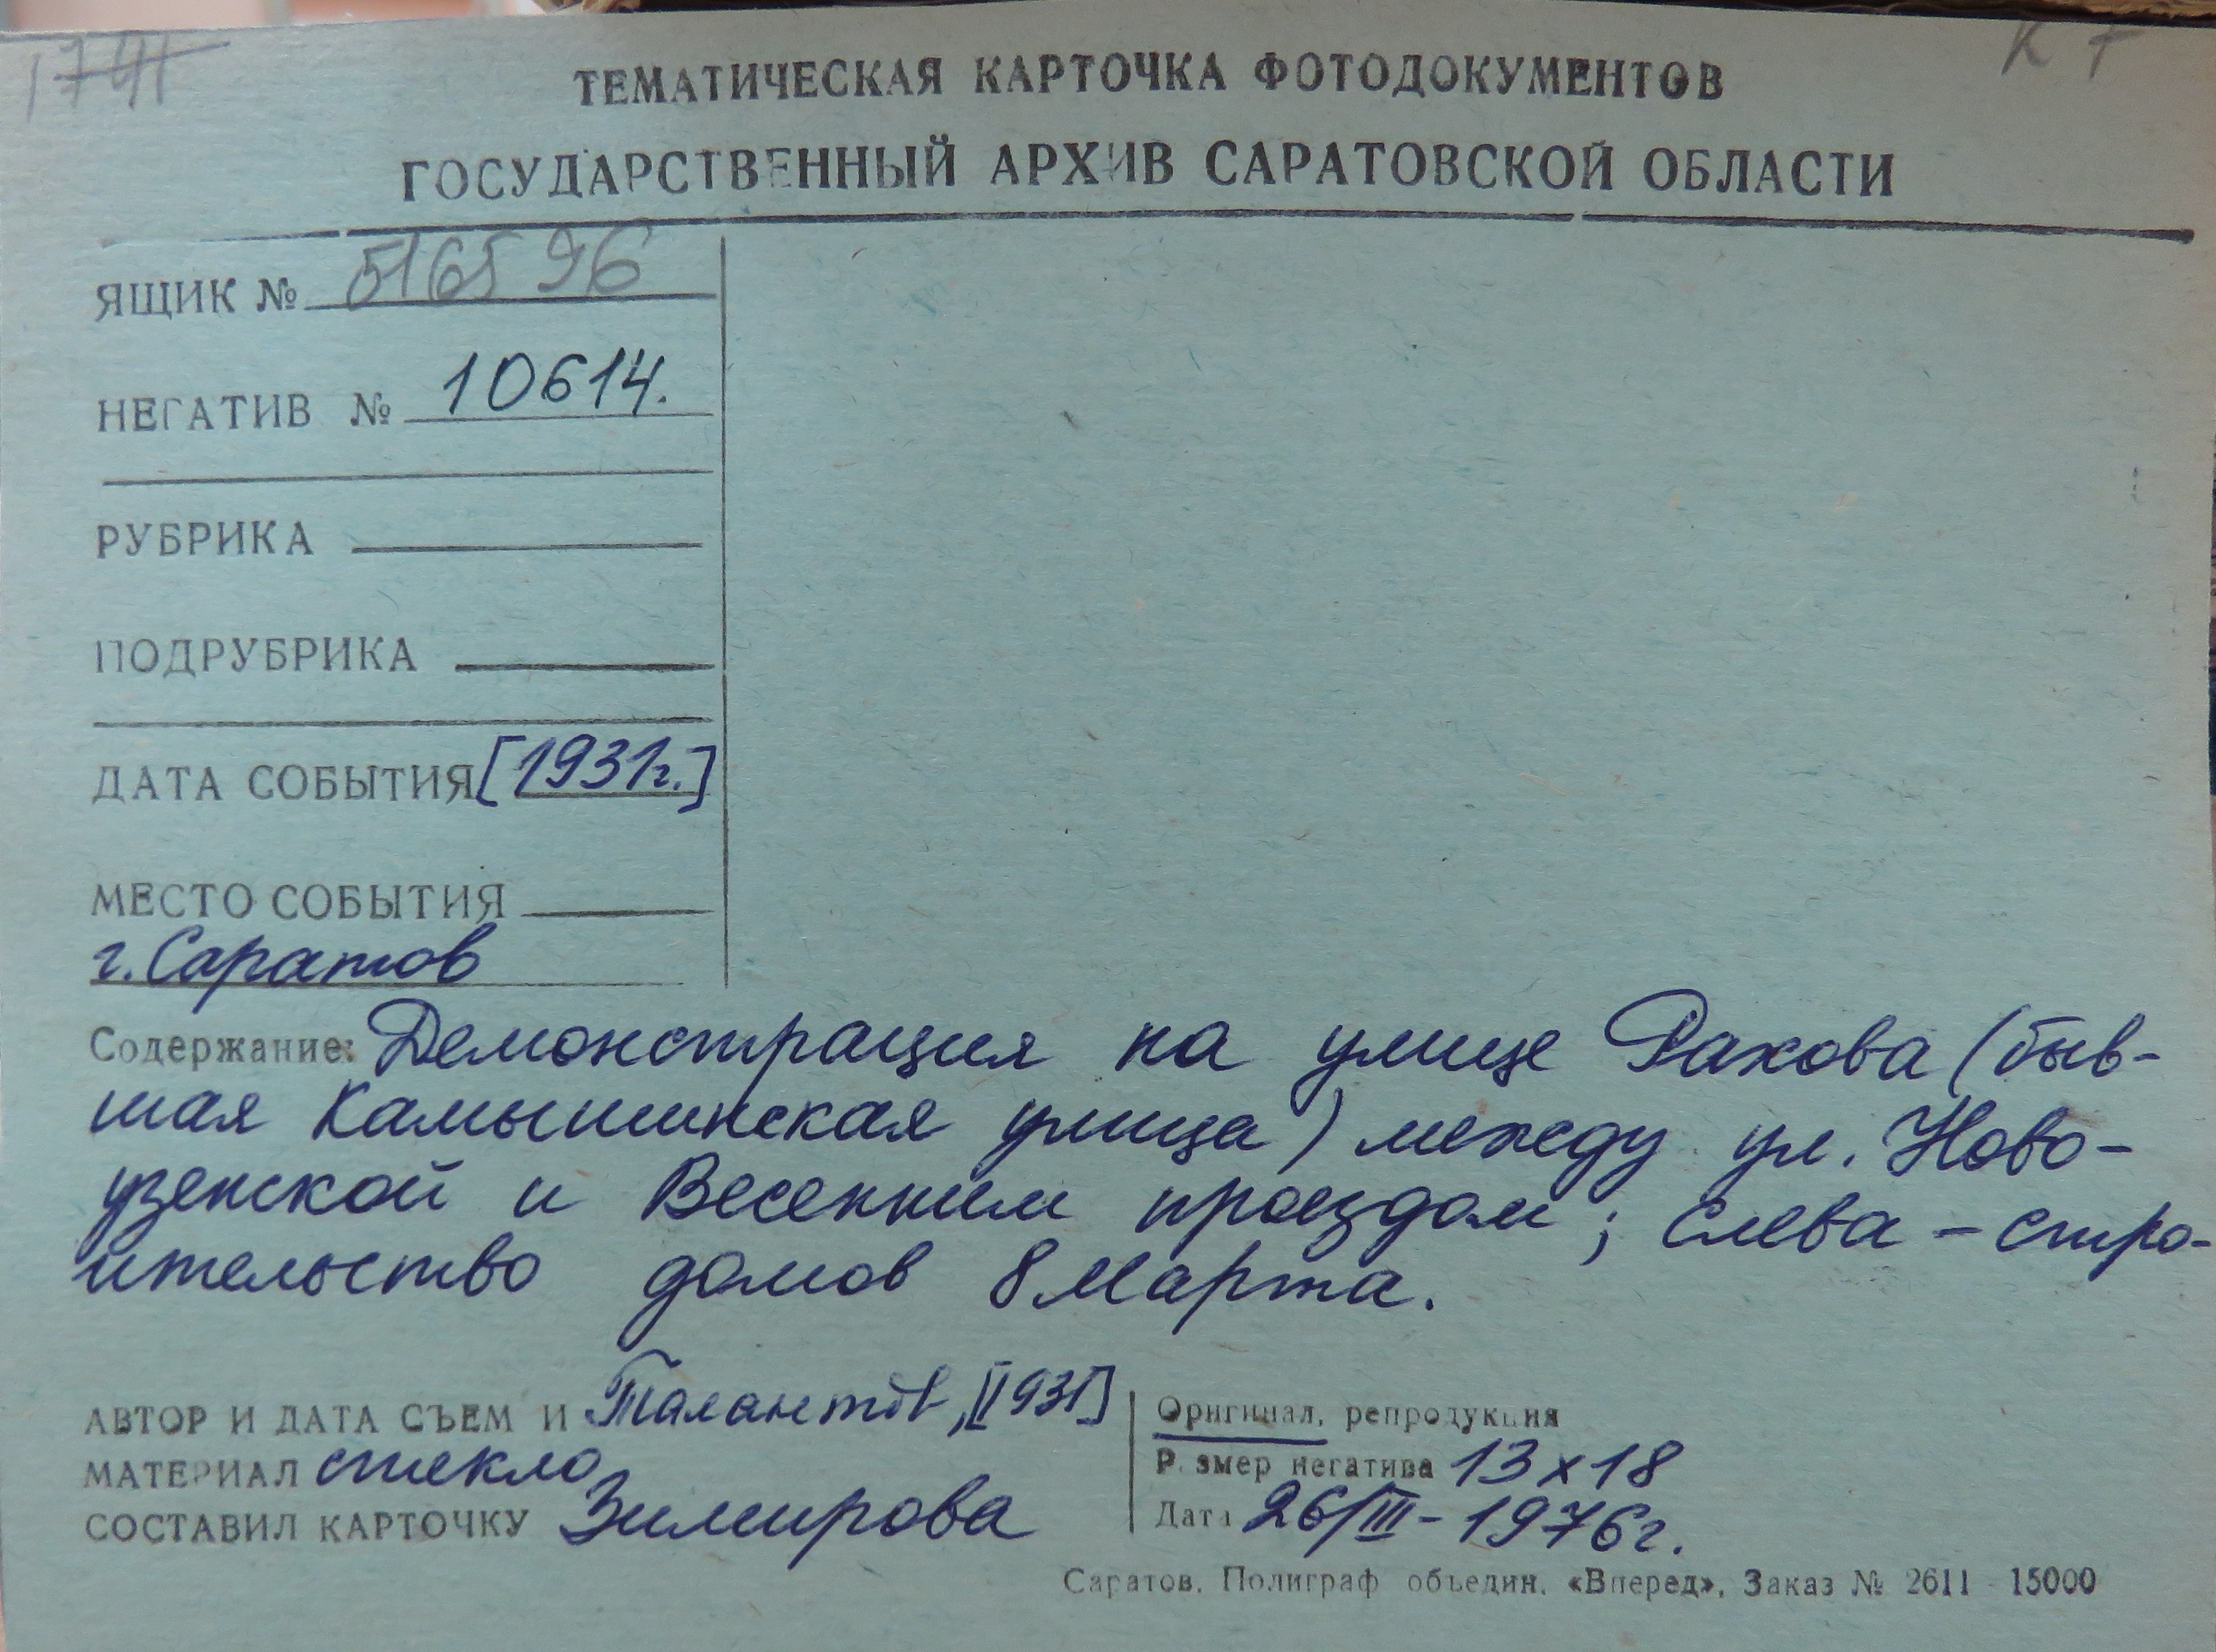 1741 К 7
ТЕМАТИЧЕСКАЯ КАРТОЧКА ФОТОДОКУМЕНТОВ
ГОСУДАРСТВЕННЫЙ АРХИВ САРАТОВСКОЙ ОБЛАСТИ
ЯЩИК №
НЕГАТИВ № 10614.
РУБРИКА
ПОДРУБРИКА
ДАТА СОБЫТИЯ [1931г.]
МЕСТО СОБЫТИЯ
г. Саратов
Содержание: Демонстрация на улице Рахова (быв-
шая Камышинская улица) между ул. Ново-
узенской и Весенним проездом; слева - стро-
ительство домов 8 Марта.
АВТОР И ДАТА СЪЕМ И Талантов, [1931]
МАТЕРИАЛ стекло
СОСТАВИЛ КАРТОЧКУ Зимирова
Оригинал, репродукция
Размер негатива 13х18
Дата 26/III-1976г.
Саратов. Полиграф объедин. «Вперед». Заказ № 2611 15000